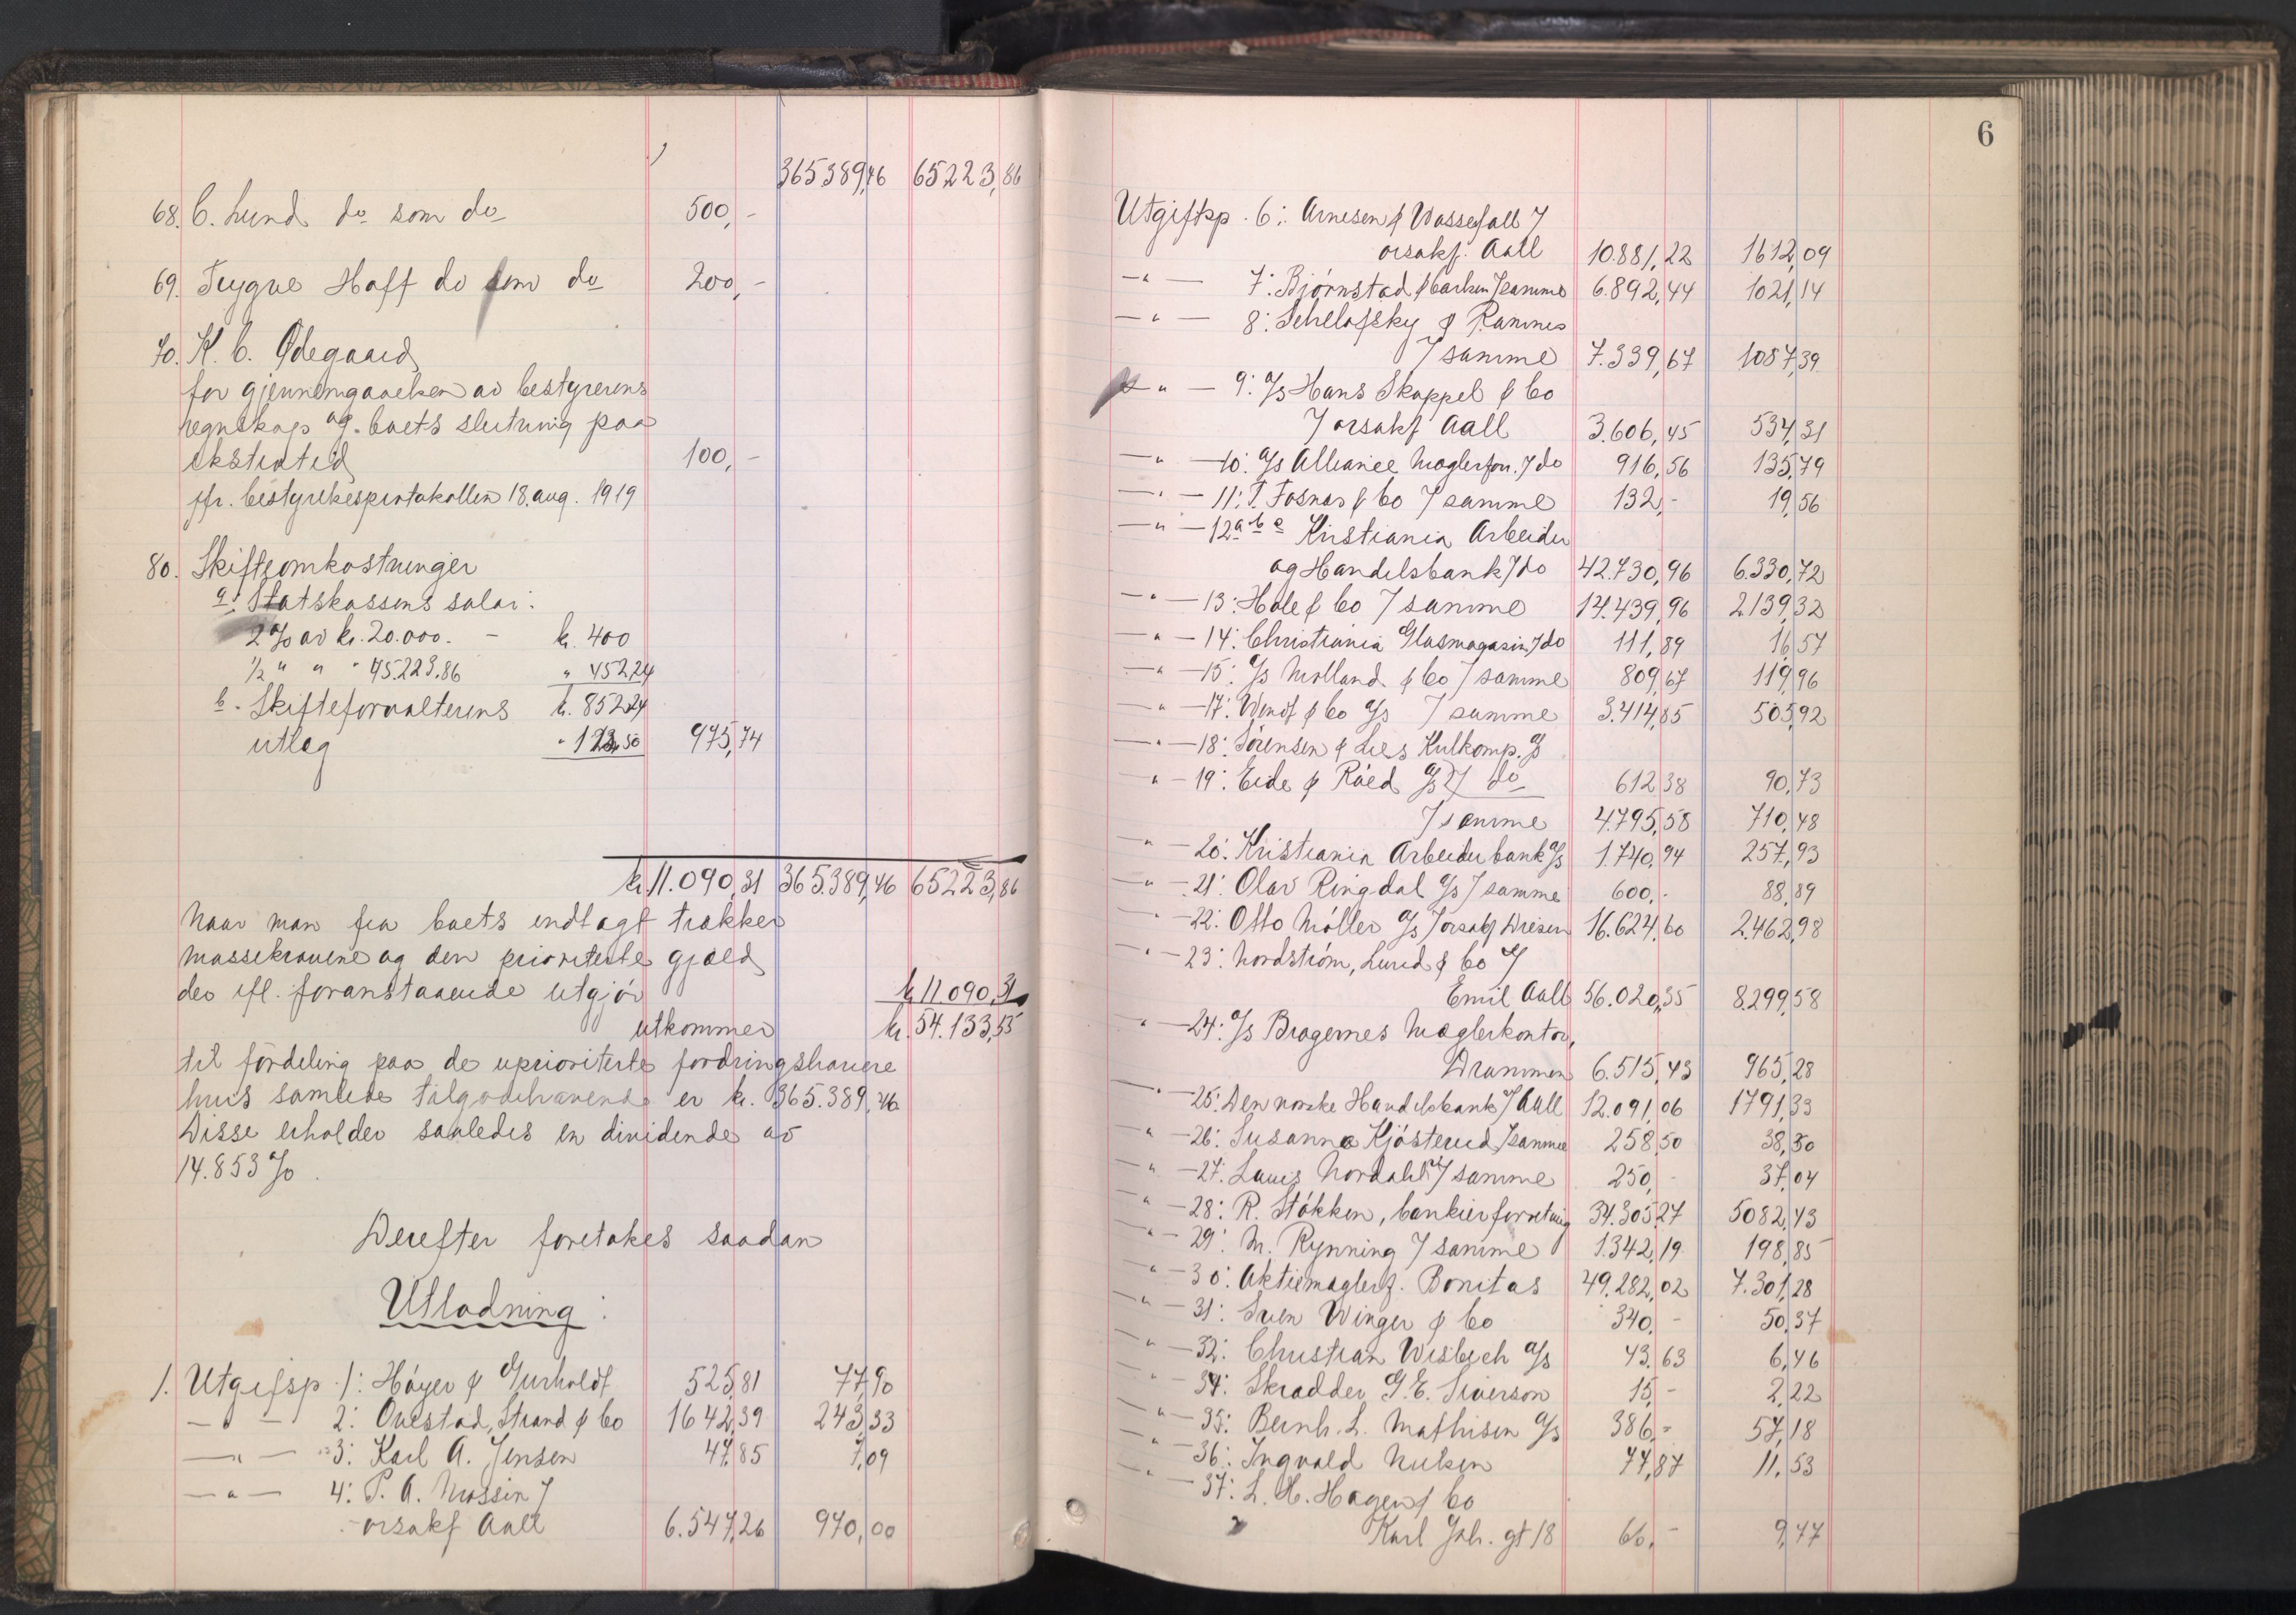 365389,46 65223,86
68. C. Lund do som do 500,-
69. Trygve Hoff do som do 200,-
70. K. C. Ødegaard
for gjennemgaaelsen av bestyrerens
regnskap og boets slutning paa
ekstratid 100,-
jfr. bestyrelsesprotokollen 18. aug. 1919
80. Skifteomkostninger
a. Statskassens salær:
2 % av kr. 20.000. - kr. 400
½ " " " 45.223.86 " 452,24
b. Skifteforvalterens kr. 852.24
utlæg " 123,50 975,74
kr. 11.090,31 365.389,46 65223,86
Naar man fra boets indtægt trækker
massekravene og den prioriterte gjæld
der ifl. foranstaaende utgjør kr. 11.090,31
utkommer kr. 54.133,55
til fordeling paa de uprioriterte fordringshavere
hvis samlede tilgodehavende er kr. 365.389,46
Disse erholder saaledes en dividende av
14.853 %.
Derefter foretokes saadan
Utlodning:
1. Utgiftsp 1: Høyer & Gurholdt 525,81 77,90
— " — 2: Ovestad, Strand & Co 1642,39 243,33
— " — 3: Karl A. Jensen 47,85 7,09
— " — 4: P. A. Mossin /
orsakf Aall 6.547,26 970,00
6
Utgiftsp. 6: Arnesen & Wassefall /
orsakf. Aall 10.881,22 1612,09
— " — 7: Bjørnstad & Carlsen / samme 6.892,44 1021,14
— " — 8: Schelofsky & Ramnes
/ samme 7.339,67 1087,39
— " — 9: A/s Hans Skappel & Co
/ orsakf Aall 3.606,45 534,31
— " — 10: A/s Alliance Mæglerforr. / do 916,56 135,79
— " — 11: T. Fosnæs & Co / samme 132,- 19,56
— " — 12 a b c Kristiania Arbeider
og Handelsbank / do 42.730,96 6.330,72
— " — 13: Hole & Co / samme 14.439,96 2.139,32
— " — 14: Christiania Glasmagasin / do 111,89 16,57
— " — 15: A/s Molland & Co / samme 809,67 119,96
— " — 17: Wendt & Co A/s / samme 3.414,85 505,92
— " — 18: Sørensen & Lies Kulkomp. A/s
" — 19: Eide & Røed A/s / do 612,38 90,73
/ samme 4.795,58 710,48
— " — 20: Kristiania Arbeiderbank A/s 1.740,94 257,93
— " — 21: Olav Ringdal A/s / samme 600,- 88,89
— " — 22: Otto Møller A/s / orsakf Driesen 16.624,60 2.462,98
— " — 23: Nordstrøm, Lund & Co /
Emil Aall 56.020,35 8.299,58
— " — 24: A/s Bragernes Mæglerkontor,
Drammen 6.515,43 965,28
— " — 25: Den norske Handelsbank / Aall 12.091,06 1791,33
— " — 26: Susanna Kjøsterud / samme 258,50 38,30
— " — 27: Lauis Nordahl / samme 250,- 37,04
— " — 28: R. Støkken, bankierforretning 34.305,27 5082,43
— " — 29: M. Rynning / samme 1.342,19 198,85
— " — 30: Aktiemæglerf. Bonitas 49.282,02 7.301,28
— " — 31: Sven Winger & Co 340,- 50,37
— " — 32: Christian Wisbech A/s 43,63 6,46
— " — 34: Skrædder G. E. Siverson 15,- 2,22
— " — 35: Bernh. L. Mathisen A/s 386,- 57,18
— " — 36: Ingvald Nielsen 77,87 11,53
— " — 37: L. H. Hagen & Co
Karl Joh. gt 18 66,- 9,77